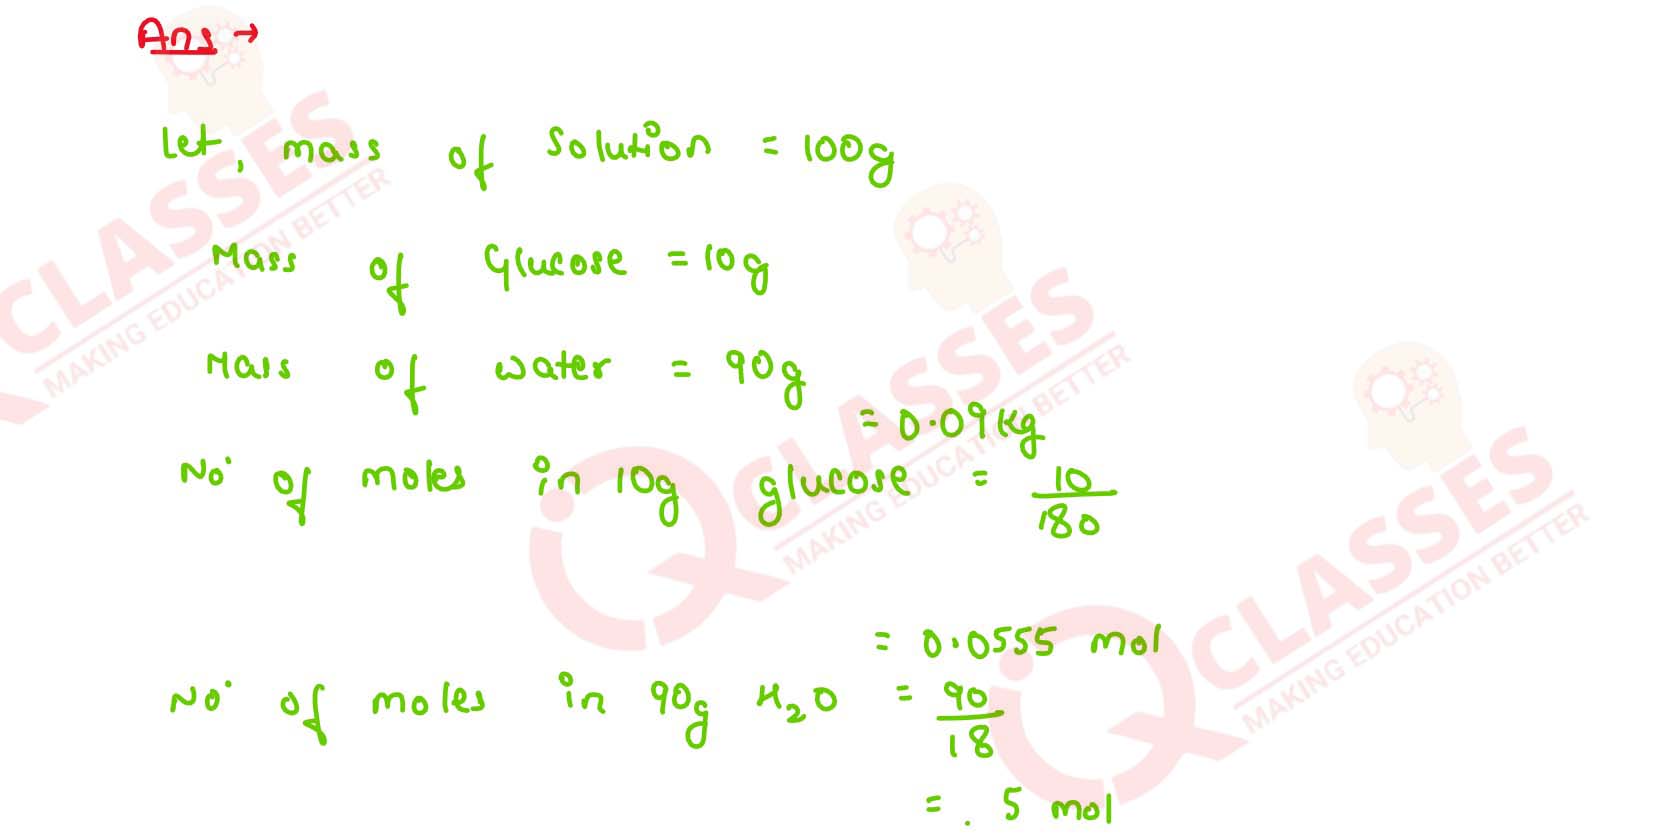 Ans →
Let, mass of Solution = 100g
Mass of Glucose = 10g
Mass of water = 90g
= 0.09kg
No. of moles in 10g glucose = 10/180
= 0.0555 mol
No. of moles in 90g H₂O = 90/18
= . 5 mol
CLASSES
MAKING EDUCATION BETTER
iQ CLASSES
MAKING EDUCATION BETTER
iQ CLASSES
MAKING EDUCATION BETTER